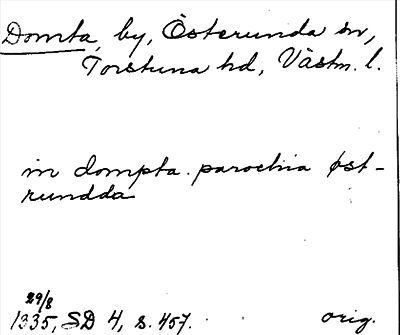 Domta, by, Österunda sn,
Torstuna hd, Västm. l.
in dompta. parochia øst-
rundda
29/8
1335, SD 4, s. 457. orig.